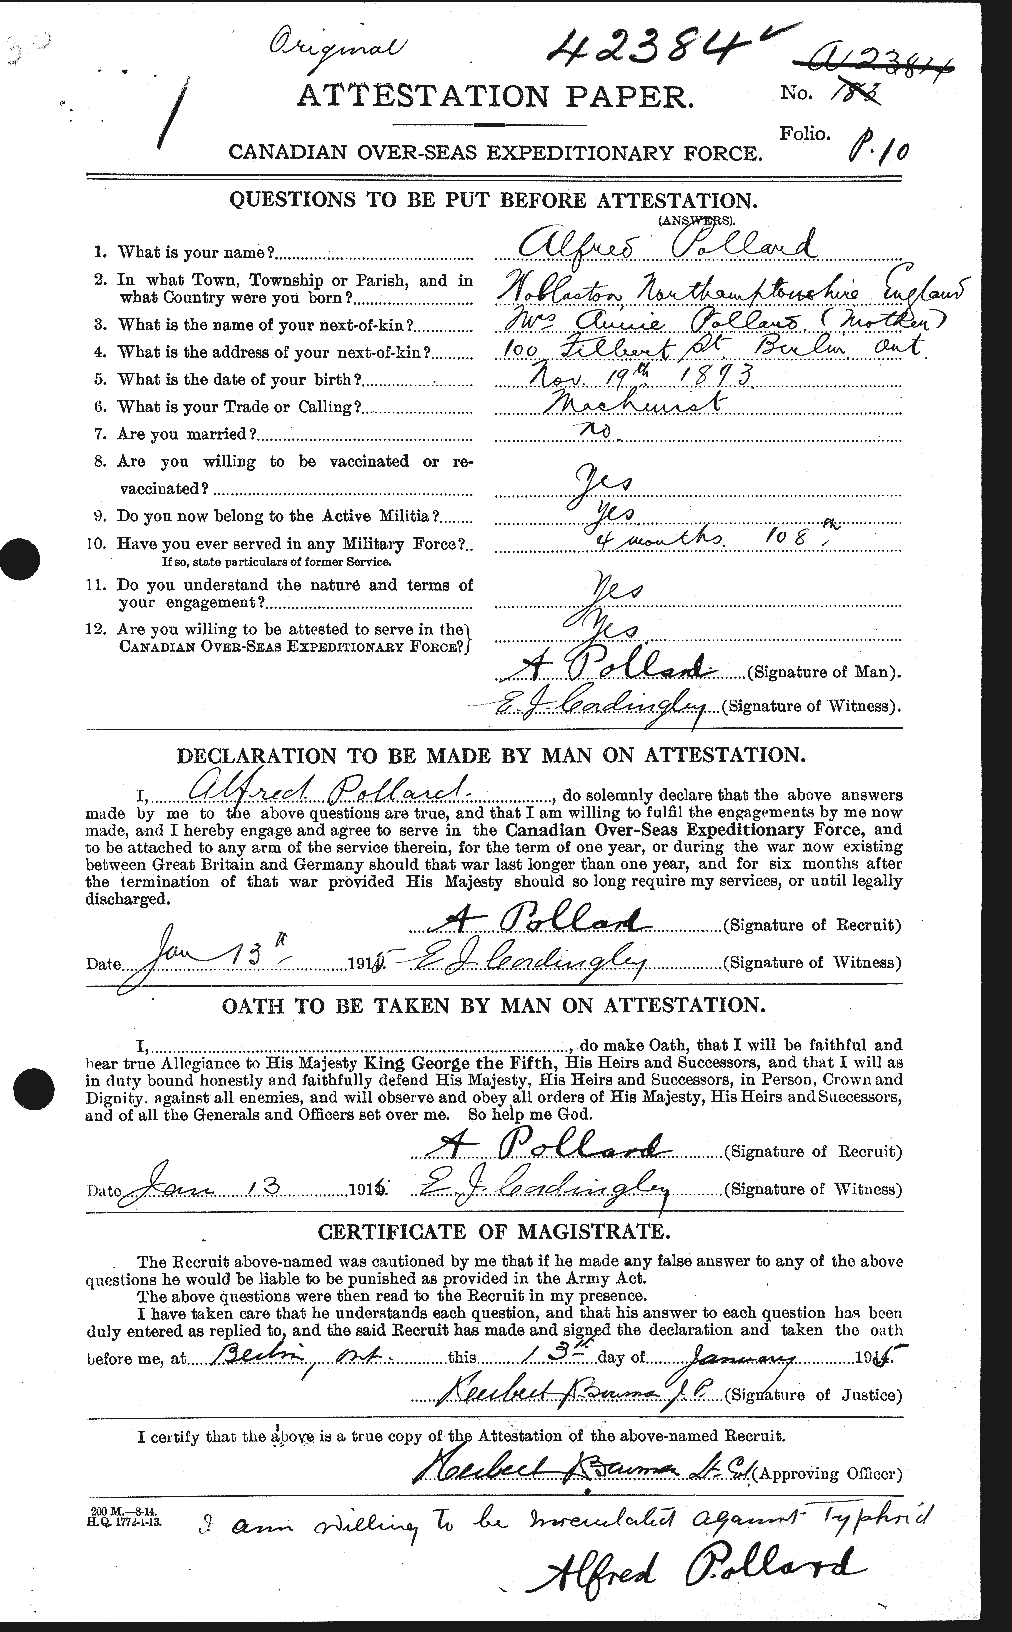 Original
42384
A42384
ATTESTATION PAPER.
No. 183
Folio. P.10
CANADIAN OVER-SEAS EXPEDITIONARY FORCE.
QUESTIONS TO BE PUT BEFORE ATTESTATION.
(ANSWERS).
1. What is your name? Alfred Pollard
2. In what Town, Township or Parish, and in
what Country were you born? Wollaston, Northamptonshire England
3. What is the name of your next-of-kin? Mrs Annie Pollard (Mother)
4. What is the address of your next-of-kin? 100 Filbert St. Berlin Ont
5. What is the date of your birth? Nov. 19th 1893
6. What is your Trade or Calling? Machinist
7. Are you married? no
8. Are you willing to be vaccinated or re-
vaccinated? Yes
9. Do you now belong to the Active Militia? Yes
10. Have you ever served in any Military Force? 4 months. 108th
If so, state particulars of former Service.
11. Do you understand the nature and terms of
your engagement? Yes
12. Are you willing to be attested to serve in the
CANADIAN OVER-SEAS EXPEDITIONARY FORCE? Yes
A Pollard (Signature of Man).
E. J. Cordingley (Signature of Witness).
DECLARATION TO BE MADE BY MAN ON ATTESTATION.
I, Alfred Pollard, do solemnly declare that the above answers
made by me to the above questions are true, and that I am willing to fulfil the engagements by me now
made, and I hereby engage and agree to serve in the Canadian Over-Seas Expeditionary Force, and
to be attached to any arm of the service therein, for the term of one year, or during the war now existing
between Great Britain and Germany should that war last longer than one year, and for six months after
the termination of that war provided His Majesty should so long require my services, or until legally
discharged.
A Pollard (Signature of Recruit)
Date Jan 13th 1915. E J Cordingley (Signature of Witness)
OATH TO BE TAKEN BY MAN ON ATTESTATION.
I, , do make Oath, that I will be faithful and
bear true Allegiance to His Majesty King George the Fifth, His Heirs and Successors, and that I will as
in duty bound honestly and faithfully defend His Majesty, His Heirs and Successors, in Person, Crown and
Dignity, against all enemies, and will observe and obey all orders of His Majesty, His Heirs and Successors,
and of all the Generals and Officers set over me. So help me God.
A Pollard (Signature of Recruit)
Date Jan 13 1915. E. J. Cordingley (Signature of Witness)
CERTIFICATE OF MAGISTRATE.
The Recruit above-named was cautioned by me that if he made any false answer to any of the above
questions he would be liable to be punished as provided in the Army Act.
The above questions were then read to the Recruit in my presence.
I have taken care that he understands each question, and that his answer to each question has been
duly entered as replied to, and the said Recruit has made and signed the declaration and taken the oath
before me, at Berlin, Ont. this 13th day of January 1915.
Herbert Bowman J.P. (Signature of Justice)
I certify that the above is a true copy of the Attestation of the above-named Recruit.
Herbert Bowman Lt. Col (Approving Officer)
200 M.—8-14.
H.Q. 1772-1-13.
I am willing to be innoculated against Typhoid
Alfred Pollard